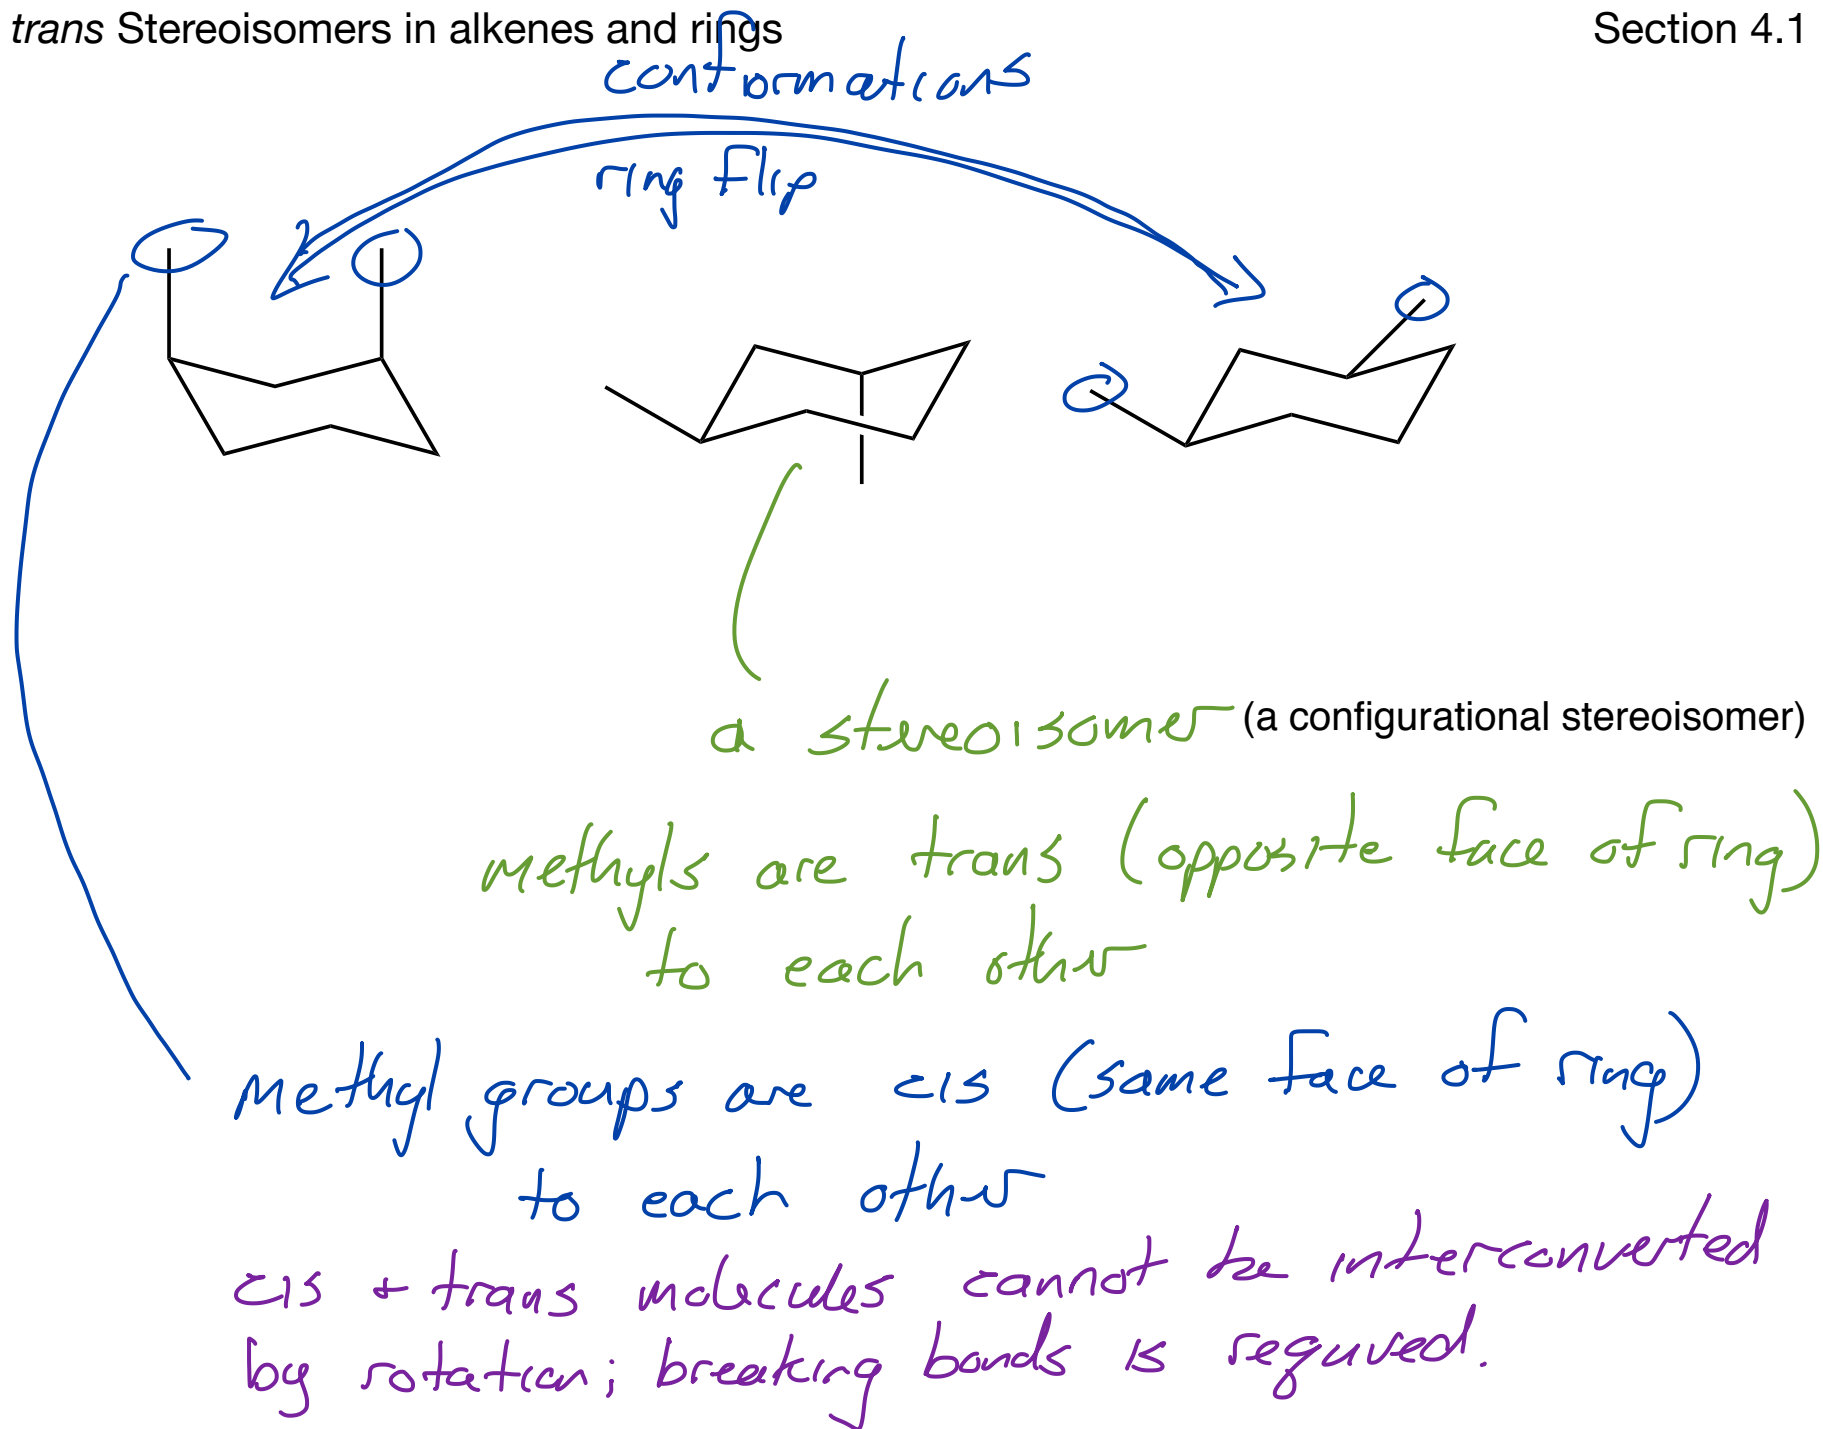 trans Stereoisomers in alkenes and rings
Section 4.1
conformations
ring flip
a stereoisomer (a configurational stereoisomer)
methyls are trans (opposite face of ring)
to each other
methyl groups are cis (same face of ring)
to each other
cis + trans molecules cannot be interconverted
by rotation; breaking bonds is required.